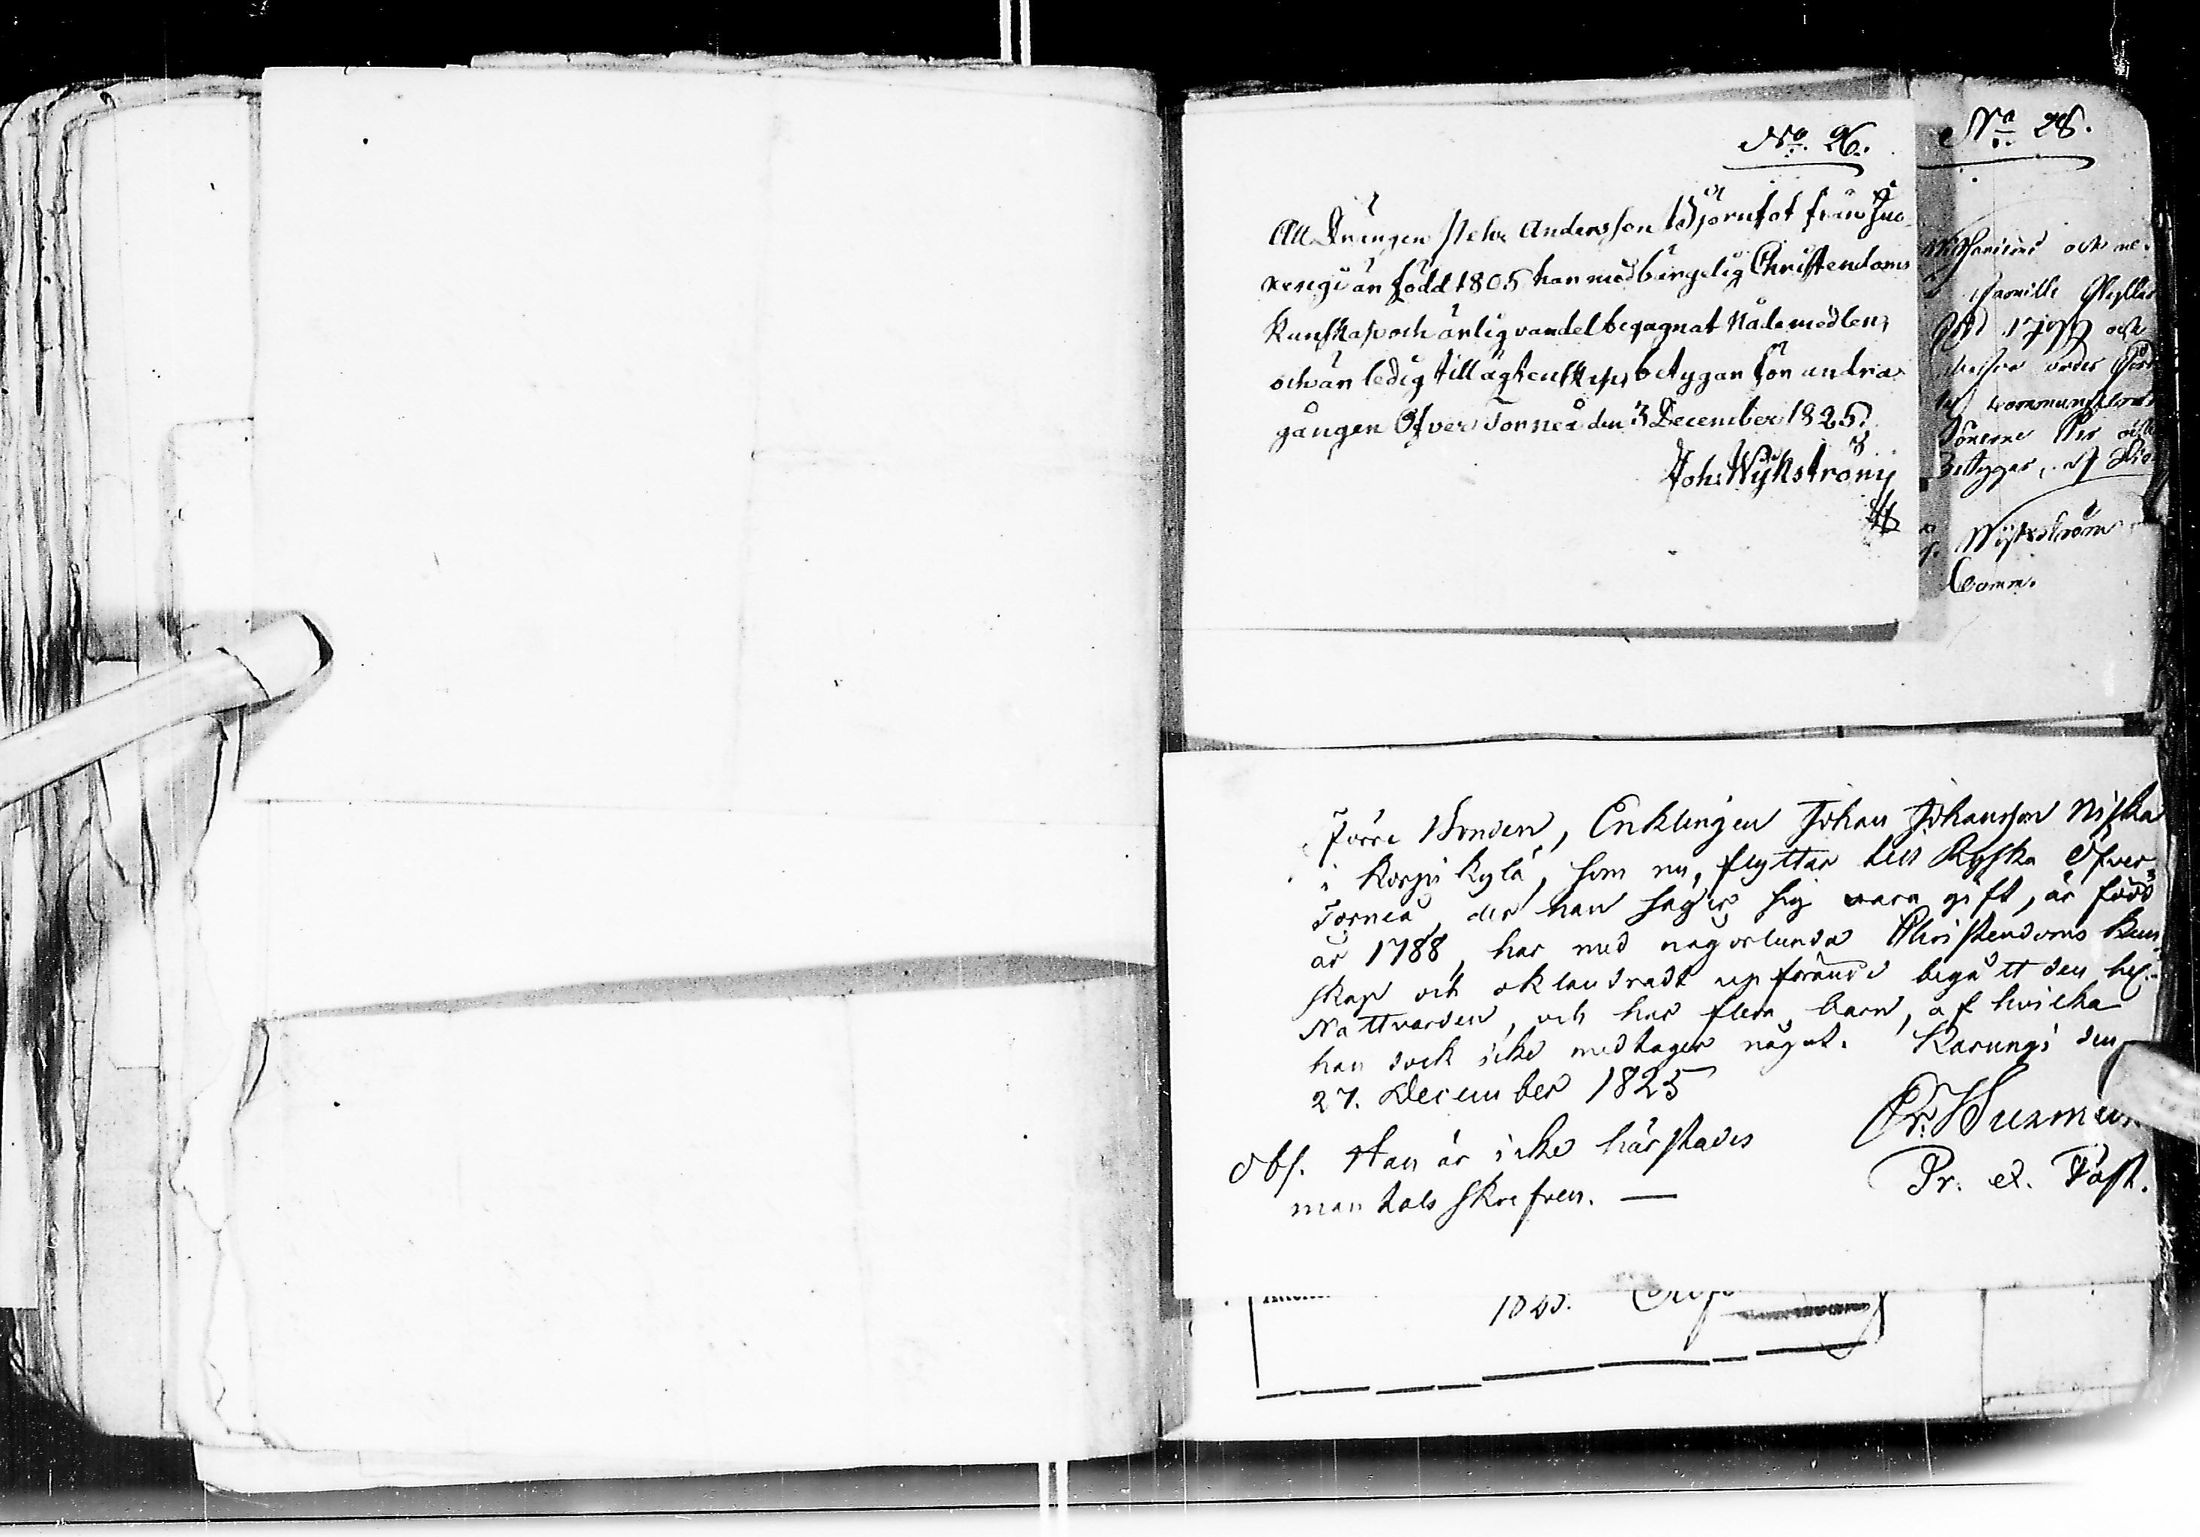 No. 26.
Att Drängen Pehr Andersson Björnfot från Juo-
xengi är född 1805 har med bärgelig Christendoms
kunskap och ärlig vandel begagnat Nådemedlen,
och är ledig till ägtenskap, betygar för andra
gången Öfver Torneå den 3 December 1825.
Joh: Wijkström
No 28.
och
Familie
född 17 och
under
Sönerne Per och
Betygar, at
Wijkström
Comm.
Förre Bonden, Enklingen Johan Johansson Niska
i Korpikylä, som nu flyttar till Ryska Öfver
Torneå, der han säger sig vara gift, är född
år 1788, har med någorlunda Christendoms kun-
skap och oklandradt upförande begått den hel.
Nattvarden, och har flera barn, af hvilka
han dock icke medtager något. Karungi den
27. December 1825
Obs. Han är icke härstädes
mantals skrefven. —
Pr. et. Past.